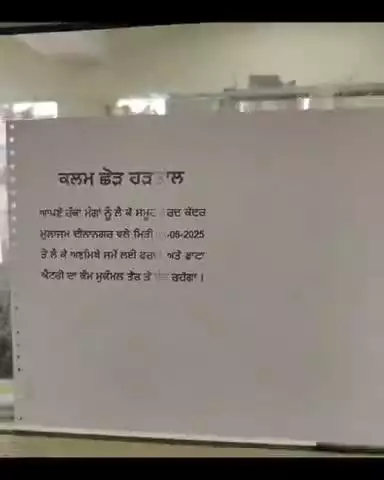 ਕਲਮ ਛੋੜ ਹੜਤਾਲ
ਆਪਣੇ ਹੱਕਾ ਮੰਗਾਂ ਨੂੰ ਲੈ ਕੇ ਸਮੂਹ ਕੇਂਦਰ
ਮੁਲਾਜਮ ਦੀਨਾਨਗਰ ਵਲੋ ਮਿਤੀ -06-2025
ਤੋ ਲੈ ਕੇ ਅਣਮਿਥੇ ਸਮੇਂ ਲਈ ਅਤੇ ਡਾਟਾ
ਐਂਟਰੀ ਦਾ ਕੰਮ ਮੁਕੰਮਲ ਤੌਰ ਤੇ ਰਹੇਗਾ ।